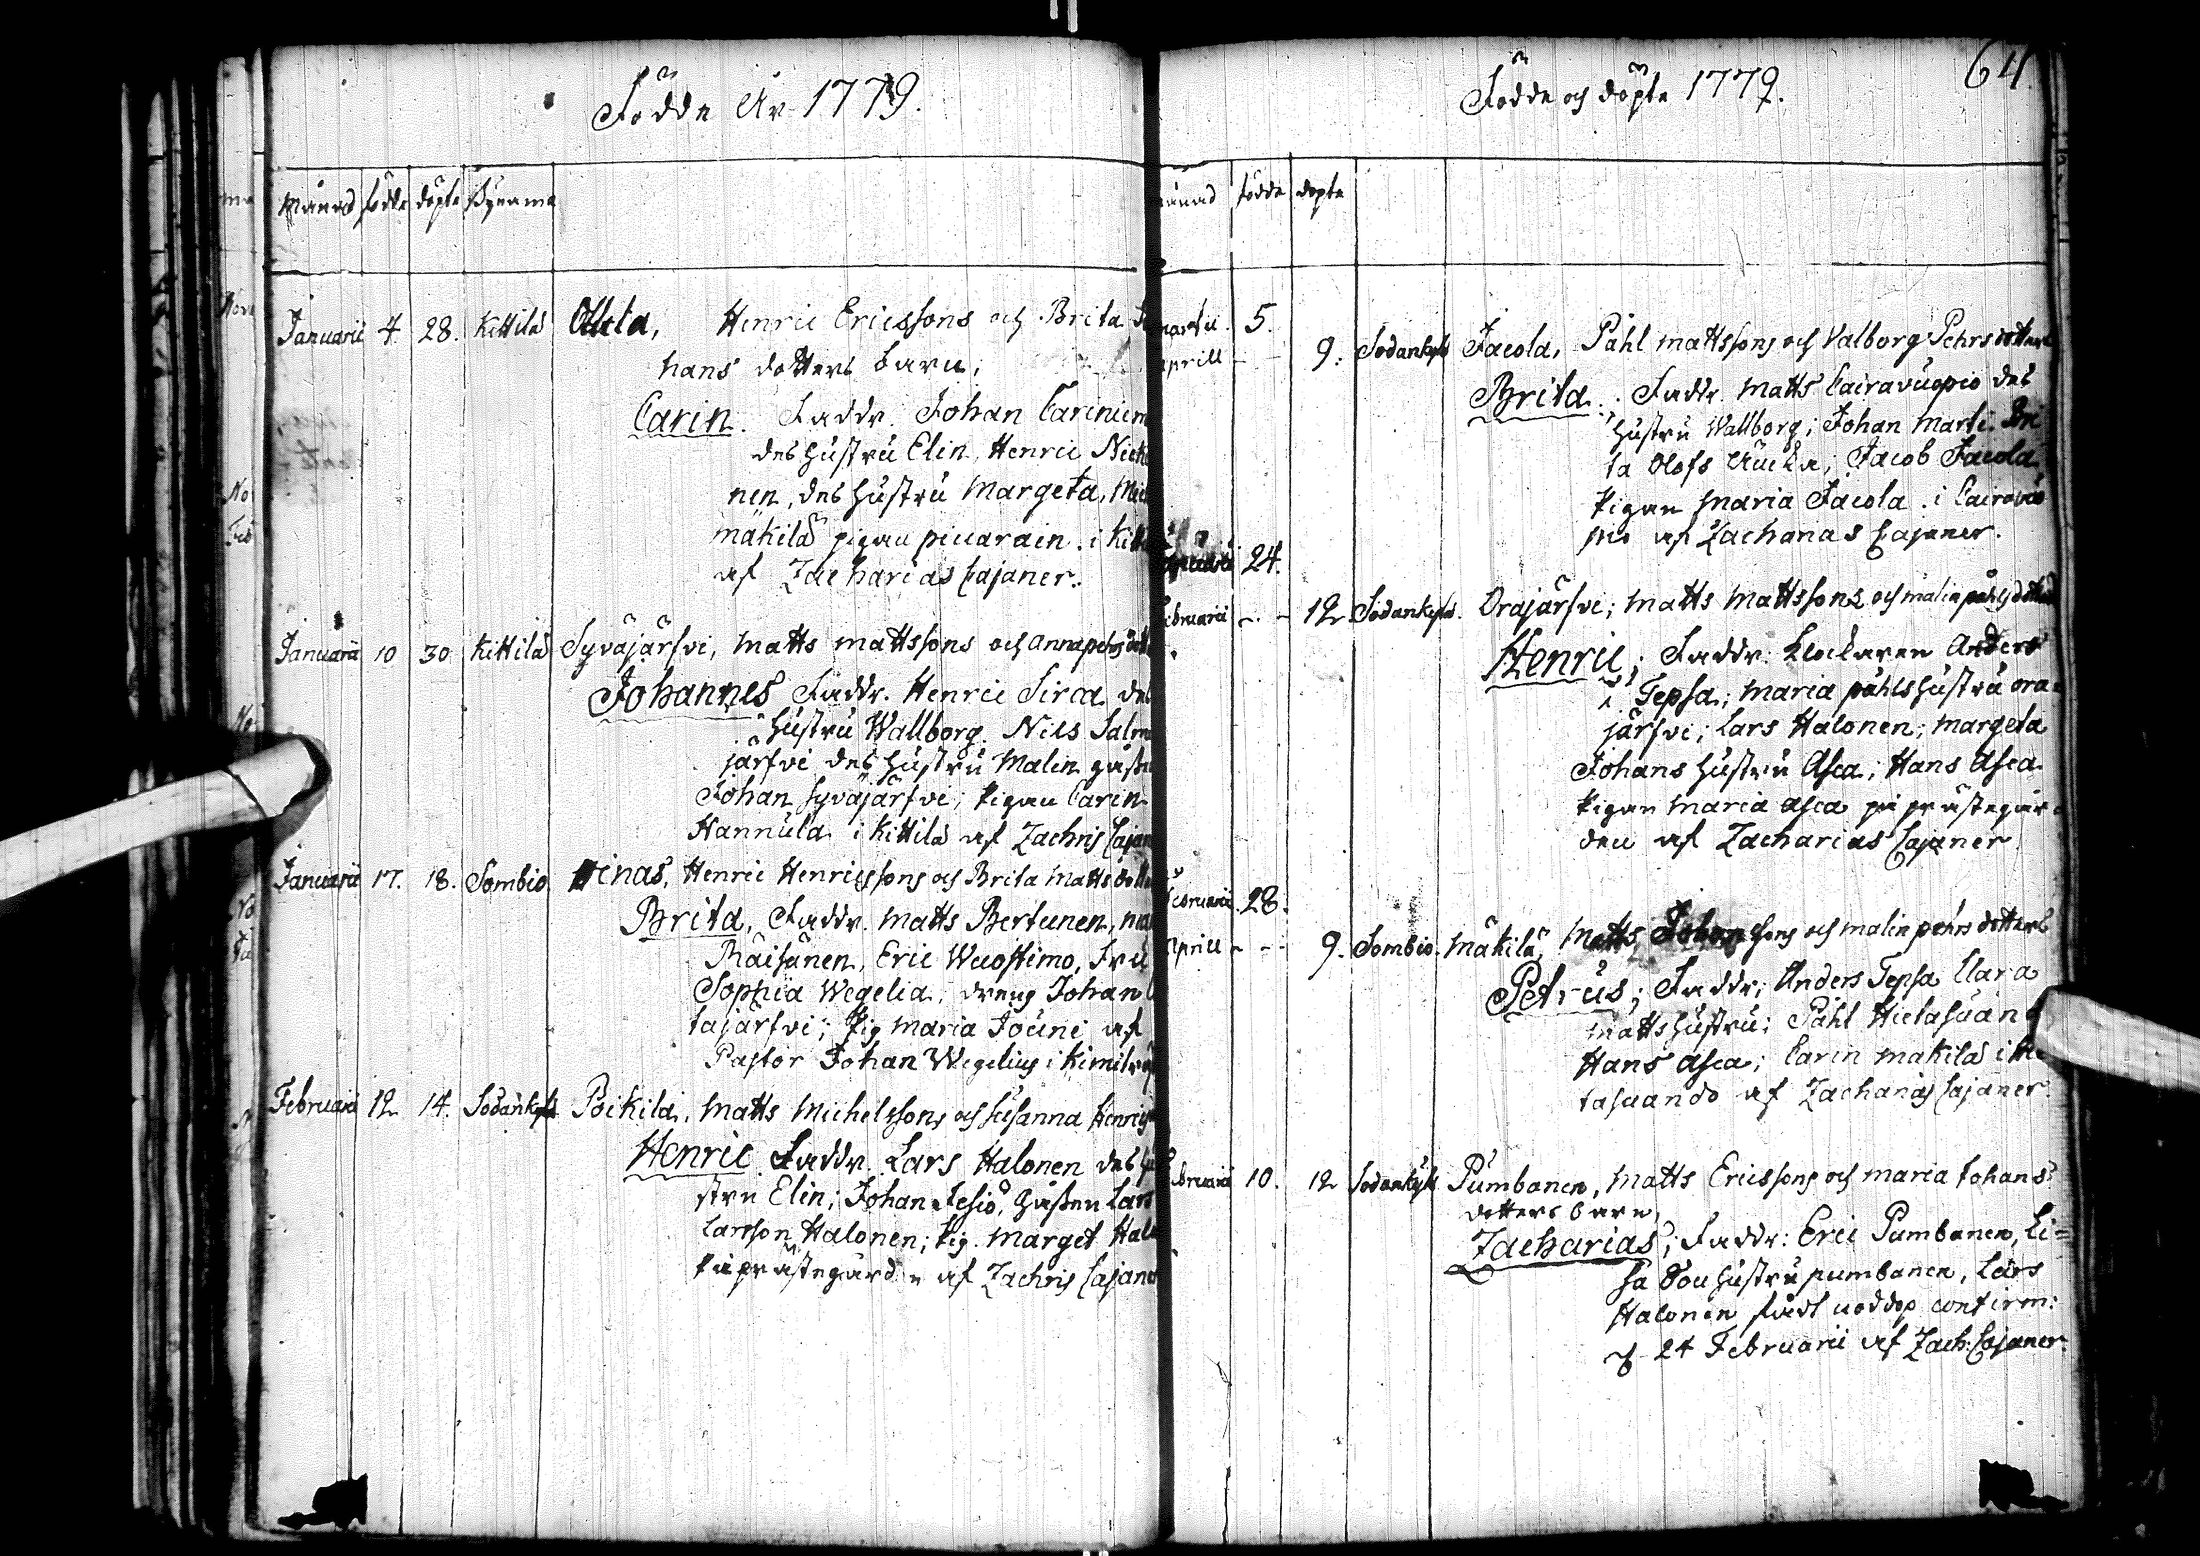 Födde År 1779.
Månad födde döpte Bynamn
Januarii 4. 28. Kittilä Ollila, Henric Ericssons och Brita Jo
hans dotters barn;
Carin. Faddr. Johan Carinien
des hustru Elin, Henric Nick
nen, des hustru Margeta, Mic
mäkilä pigan
af Zacharias Cajaner.
Januarii 10 30 Kittilä Syväjärfvi, Matts Mattssons och Anna pehrs dott
Johannes Faddr. Henric Sirca des
hustru Wallborg. Nils Salm
järfvi des hustru Malin gåßen
Johan Syväjärfvi; Pigan Carin
Hannula i Kittilä af Zachris Cajan
Januarii 17. 18. Sombio Henric Henricssons och Brita Matts dotte
Brita, Faddr. Matts Bertunen,
Räisänen, Eric Wuostimo, Fru
Sophia Wegelia; dreng Johan
tajärfvi; Pig Maria Jouni af
Pastor Johan Wegelius i Kimiträsk
Februarii 12 14. Sodankylä Poikila, Matts Michelssons och Susanna Henrics
Henric Faddr. Lars Halonen des hu
stru Elin; Johan Jesiö, Gåßen Lars
Larsson Halonen; Pig. Marget Halo
På prästegården af Zachris Cajaner
64
Födde och döpte 1779.
månad födde döpte
Martii 5.
Aprill - 9. Sodankylä Jacola, Påhl Mattssons och Valborg Pehrs dotters
Brita. Faddr. Matts Cairavuopio des
hustru Wallborg; Johan Marti. Bri
ta Olofs Encka; Jacob Jacola
Pigan Maria Jacola. i Cairavuo
pio af Zacharias Cajaner.
24.
Februarii - - 12 Sodankylä. Orajärfvi; Matts Mattssons och Malin påhls dotters
Henric; Faddr: Klockaren Anders
Tepsa; Maria påhls hustru ora=
järfvi; Lars Halonen; Margeta
Johans hustru Asca; Hans Asca
Pigan Maria Asca på prästegår=
den af Zacharias Cajaner.
Februarii. 28.
Aprill - - - 9. Sombio. Mäkilä; Matts Johanssons och Malin pehrs dotters
Petrus; Faddr; Anders Tepsa Clara
Matts hustru; Påhl Hietasuan
Hans Asca; Carin Mäkilä i Hie
tasuando af Zacharias Cajaner.
Februarii 10. 12 Sodankylä Pumbanen, Matts Ericssons och Maria Johans
dotters barn,
Zacharias; Faddr: Eric Pumbanen, Li=
sa hustru pumbanen, Lars
Halonen nöddop confirm:
24 Februarii af Zach: Cajaner.